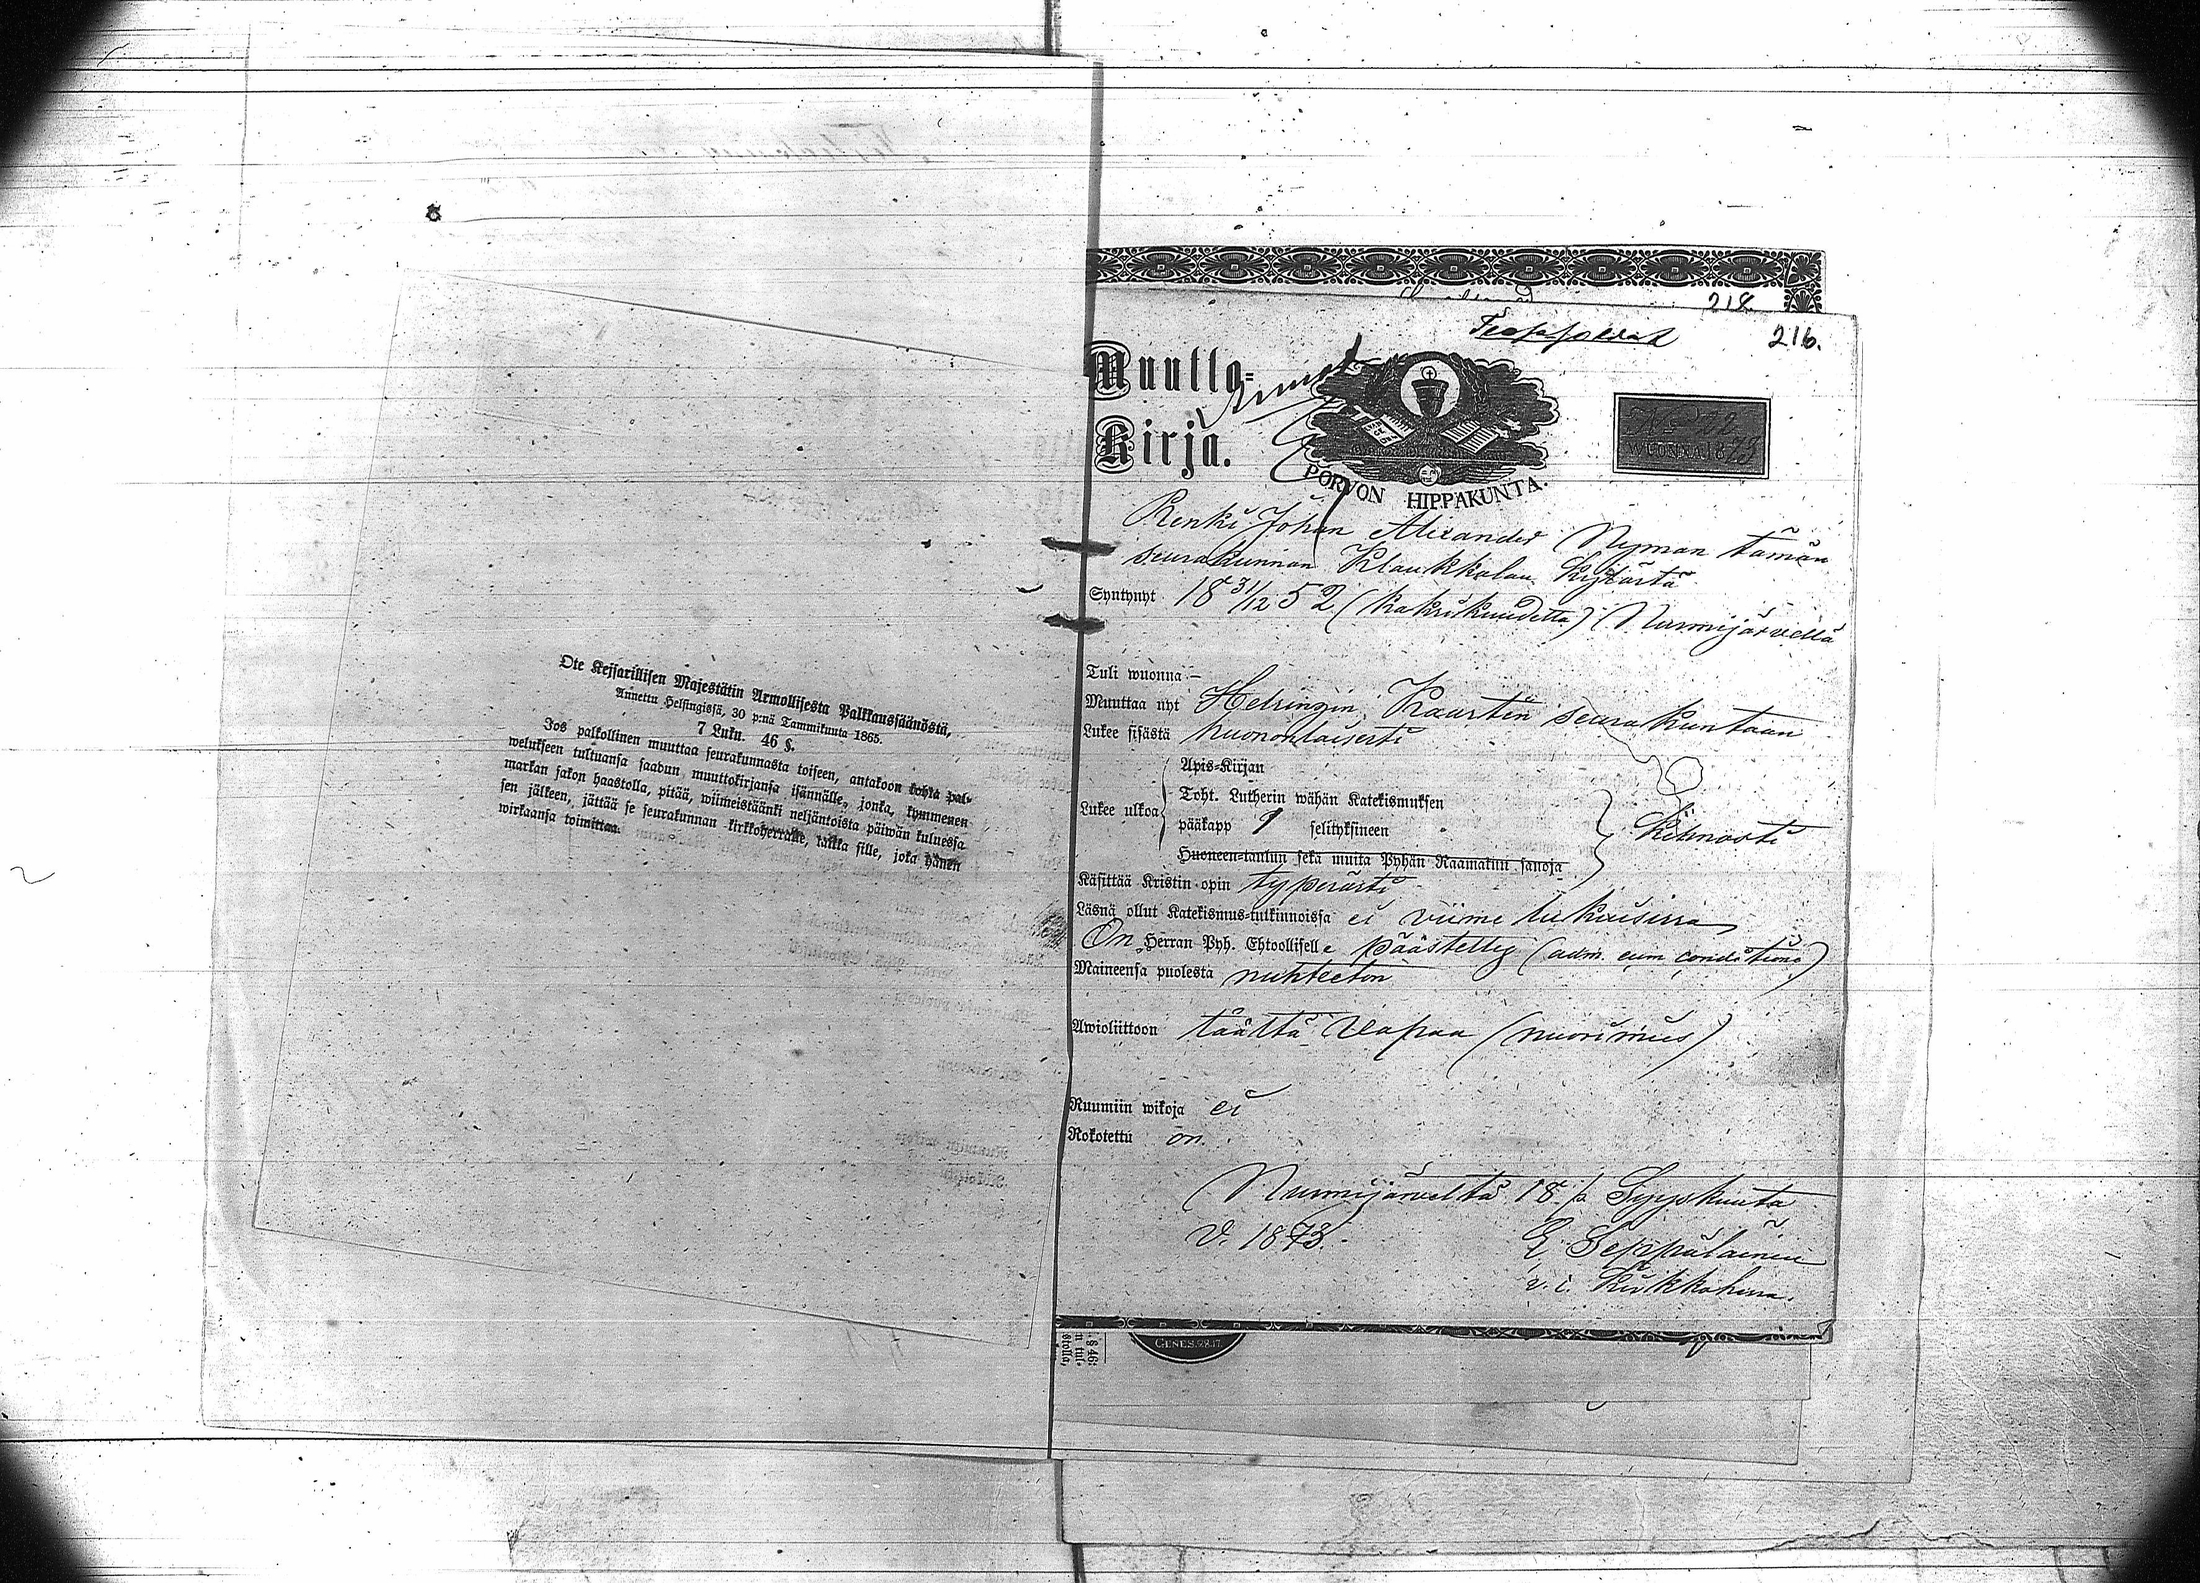 Ote Keisarillisen Majestätin Armollisesta Palkkaussäännöstä,
Annettu Helsingissä, 30 p:nä Tammikuuta 1865.
7 Luku. 46 §.
Jos palkollinen muuttaa seurakunnasta toiseen, antakoon kohta pal-
welukseen tultuansa saadun muuttokirjansa isännälle, jonka, kymmenen
markan sakon haastolla, pitää, wiimeistäänki neljäntoista päiwän kuluessa
sen jälkeen, jättää se seurakunnan kirkkoherralle, taikka sille, joka hänen
wirkaansa toimittaa.
218
216.
Muutto-
Kirja.
PORVON HIPPAKUNTA.
No 22
WUONNA 1873
Renki Johan Alexander Nyman tämän
seurakunnan Klaukkalan kylästä
Syntynyt 18 31/12 52 (kaksikuudetta) Nurmijärvellä
Tuli wuonna –
Muuttaa nyt Helsingin Kaartin seurakuntaan
Lukee sisästä huononlaisesti
Apis-Kirjan
Toht. Lutherin wähän Katekismuksen
Lukee ulkoa
pääkapp selityksineen
Huoneen-taulun sekä muita Pyhän Raamatun sanoja
Käsittää Kristin opin typerästi
Läsnä ollut Katekismus-tutkinnoissa ei viime lukusissa
On Herran Pyh. Ehtoollisell e päästetty (adm. cum conditione)
Maineensa puolesta nuhteeton
Awioliittoon täältä vapaa (nuorimies)
Ruumiin wikoja ei
Rokotettu on.
Nurmijärveltä 18 p. Syyskuuta
v. 1873.
E. Seppälainen
v. t. Kirkkoherra.
§ 46:
n tul-
stolla,
GENES. 28. 17.